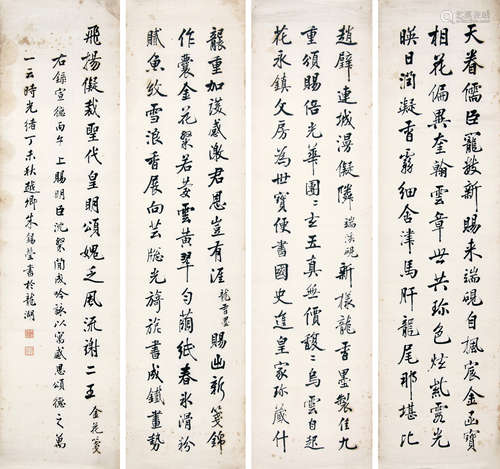 天眷儒臣寵數新賜來端硯自楓宸金函寶
相花偏異奎翰雲章世共珍色炫紫霞光
暎日潤凝香霧細含津馬肝龍尾那堪比
趙璧連城漫儗隣 端溪硯 新樣龍香墨製佳九
重頒賜倍光華團二玄玉真無價靉二烏雲自起
花永鎮文房為世寶便書國史進皇家珍藏什
襲重加護感激君恩豈有涯 龍香墨 賜出新箋錦
作囊金花繁若菱雲黃翠勻繭紙春氷滑粉
膩魚紋雪浪香展向芸牕光旖旎書成鐵畫勢
飛揚儗裁聖代皇明頌媿乏風流謝二王 金花箋
右錄宣德丙午 上賜明臣沈粲閒成吟詠以寫感恩頌德之萬
一云時光緒丁未秋趙卿朱錫瑩書於龍湖